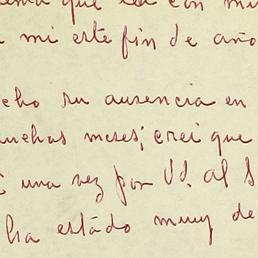 que leí con mu
a mi este fin de año
cho su ausencia en
muchos meses; creí que
una vez por Ud. al S
ha estado muy de